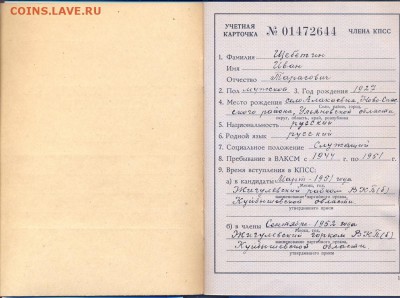 COINS.LAVE.RU
УЧЕТНАЯ
КАРТОЧКА № 01472644 ЧЛЕНА КПСС
1. Фамилия Щебетин
Имя Иван
Отчество Тарасович
2. Пол мужской 3. Год рождения 1927
4. Место рождения село
района, Ульяновской области
округ, область, край, республика
5. Национальность русский
6. Родной язык русский
7. Социальное положение Служащий
8. Пребывание в ВЛКСМ с 1944 г. по 1951 г.
9. Время вступления в КПСС:
а) в кандидаты Март-1951 года
Месяц, год,
Жигулевский горком ВКП(б)
наименование партийного органа,
Куйбышевской области.
утвердившего прием
б) в члены Сентябрь-1952 года
Месяц, год,
Жигулевский горком ВКП(б)
наименование партийного органа,
Куйбышевской области.
утвердившего прием
1